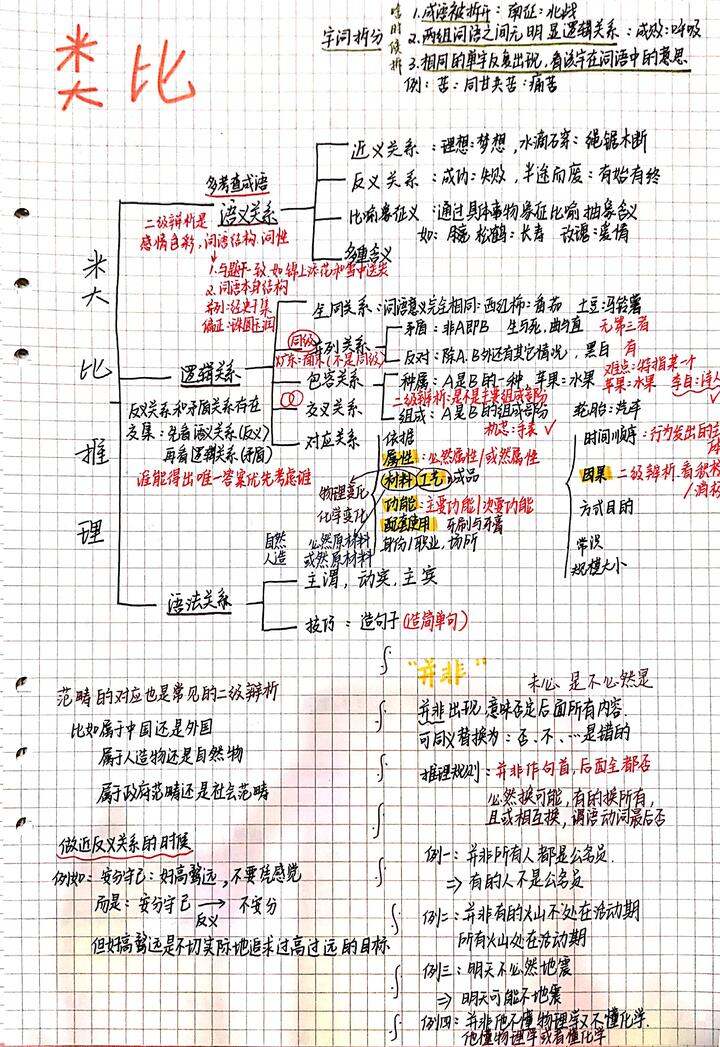 类比
字词拆分
啥时候拆
1.成语被拆开：南征：北战
2.两组词语之间无明显逻辑关系：成败：呼吸
3.相同的单字反复出现，看该字在词语中的意思
例：苦：同甘共苦：痛苦
类比推理
多考查成语
语义关系
二级辩析是
感情色彩，词语结构，词性
1.与题干一致 如锦上添花和雪中送炭
2.词语本身结构
并列：经史子集
偏正：珠圆玉润
近义关系：理想：梦想，水滴石穿：绳锯木断
反义关系：成功：失败，半途而废：有始有终
比喻象征义：通过具体事物象征比喻抽象含义
如：松鹤：长寿 玫瑰：爱情
多重含义
逻辑关系
反义关系和矛盾关系存在
交集：先看语义关系(反义)
再看逻辑关系(矛盾)
谁能得出唯一答案优先考虑谁
全同关系：词语意义完全相同：西红柿：番茄 土豆：马铃薯
同级
并列关系
(不是同级)
矛盾：非A即B 生与死，曲与直 无第三者
反对：除A.B外还有其它情况，黑白 有
包容关系
种属：A是B的一种 苹果：水果
难点：特指某一个
苹果：水果 李白：诗人
二级辩析：是不是主要组成部分
组成：A是B的组成部分 轮胎：汽车
交叉关系
对应关系
依据
属性：必然属性/或然属性
材料 工艺 成品
物理变化
化学变化
功能：主要功能/次要功能
配套使用 牙刷与牙膏
自然 必然原材料
人造 或然原材料
身份/职业，场所
时间顺序：行为发出的主体
因果 二级辨析.看积极
/消极
方式目的
常识
规模大小
语法关系
主谓，动宾，主宾
技巧：造句子(造简单句)
范畴的对应也是常见的二级辨析
比如属于中国还是外国
属于人造物还是自然物
属于政府范畴还是社会范畴
做近反义关系的时候
例如：安分守己：好高骛远，不要凭感觉
而是：安分守己→不安分
反义
但好高骛远是不切实际地追求过高过远的目标
"并非"
未必 是不必然是
并非出现.意味否定后面所有内容.
可同义替换为：否、不、…是错的
推理规则：并非作句首，后面全都否
必然换可能，有的换所有，
且或相互换，谓语动词最后否
例一：并非所有人都是公务员.
⇒有的人不是公务员
例二：并非有的火山不处在活动期
所有火山处在活动期
例三：明天不必然地震
⇒明天可能不地震
例四：并非他不懂物理学又不懂化学.
他懂物理学或者懂化学